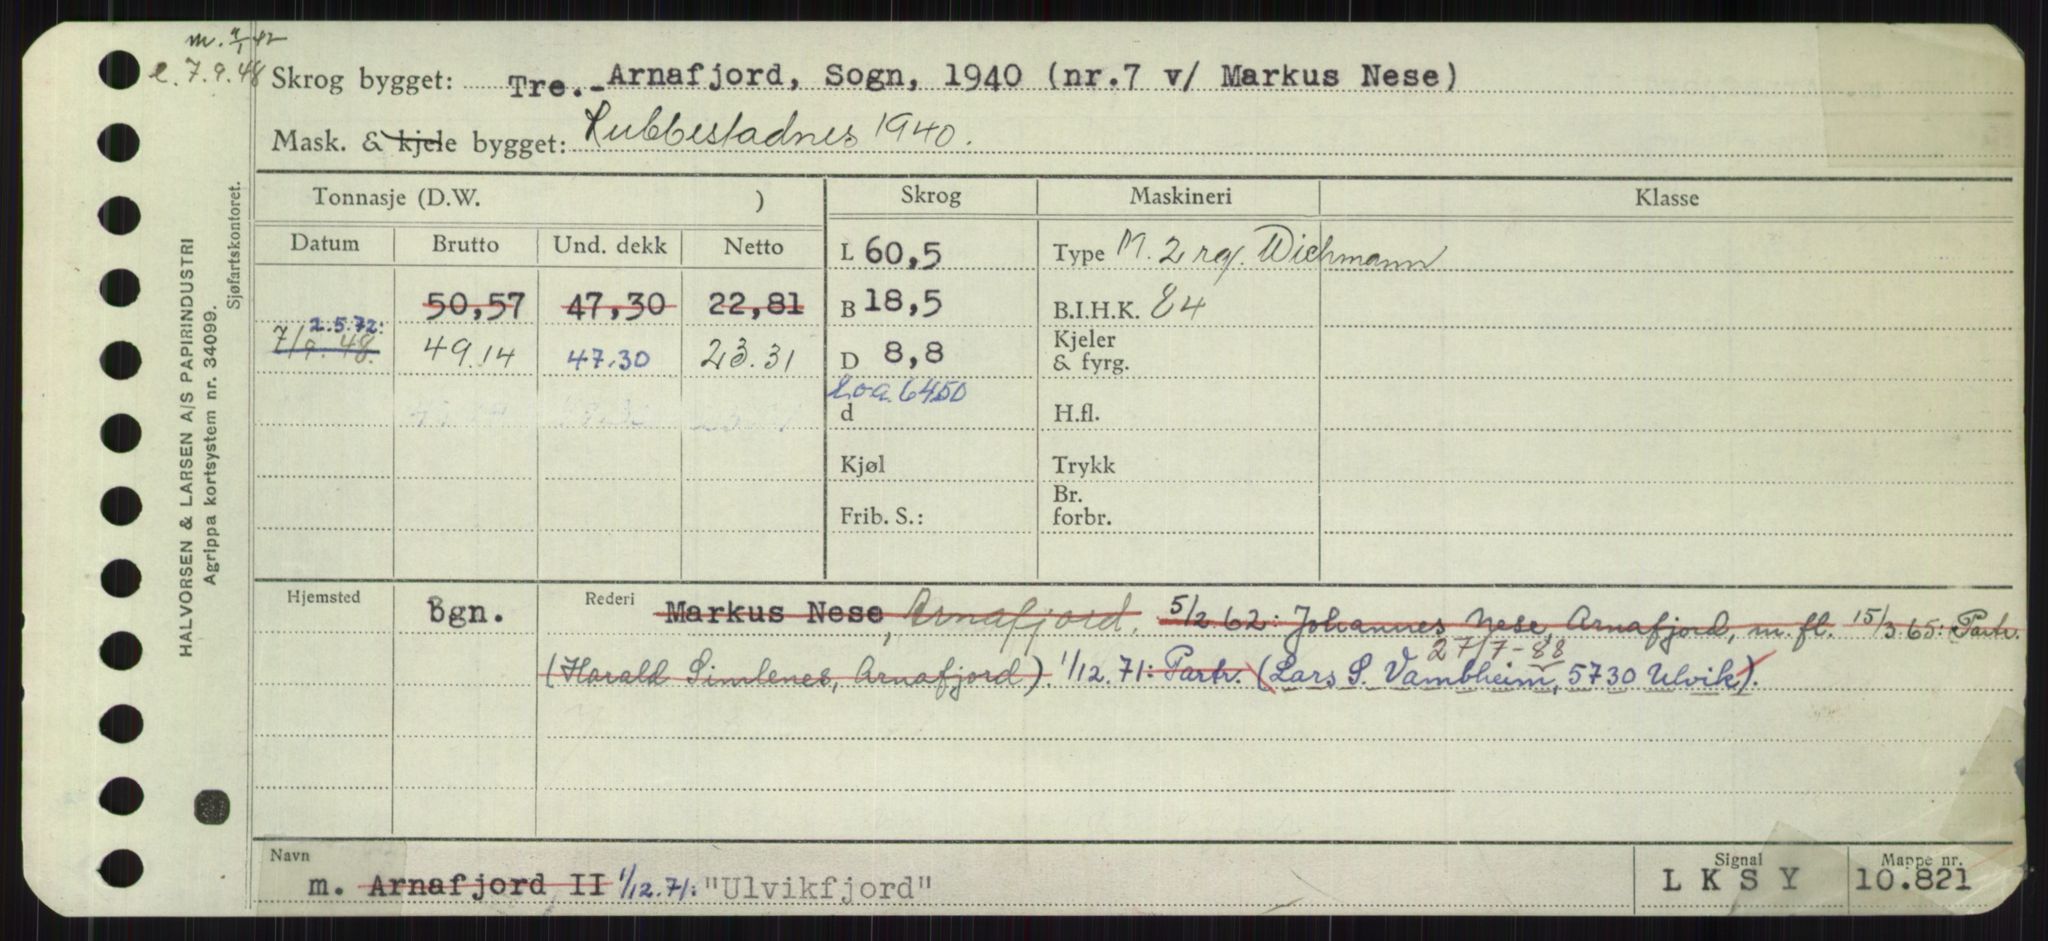 m. 9/1 42
e. 7.9.48
Skrog bygget: Tre.- Arnafjord, Sogn, 1940 (nr.7 v/ Markus Nese)
Mask. & kjele bygget: Rubbestadnes 1940.
HALVORSEN & LARSEN A/S PAPIRINDUSTRI
Agrippa kortsystem nr. 34099.
Sjøfartskontoret.
Tonnasje (D.W. ) Skrog Maskineri Klasse
Datum Brutto Und. dekk Netto
L 60,5 Type M. 2 rg. Wichmann
50,57 47,30 22,81 B 18,5 B.I.H.K. 84
2.5.72:
7/9. 48. 49.14 47.30 23.31 D 8,8 Kjeler & fyrg.
Loa. 64.50
d H.fl.
Kjøl Trykk
Frib. S.: Br. forbr.
Hjemsted bgn. Rederi Markus Nese, Arnafjord. 5/2 62: Johannes Nese, Arnafjord, m. fl. 15/3 65: Partr.
27/7-88
(Harald Simlenes, Arnafjord). 1/12.71: Partr. (Lars S. Vambheim, 5730 Ulvik).
Navn Signal Mappe nr.
m. Arnafjord II 1/12.71: "Ulvikfjord" L K S Y 10.821